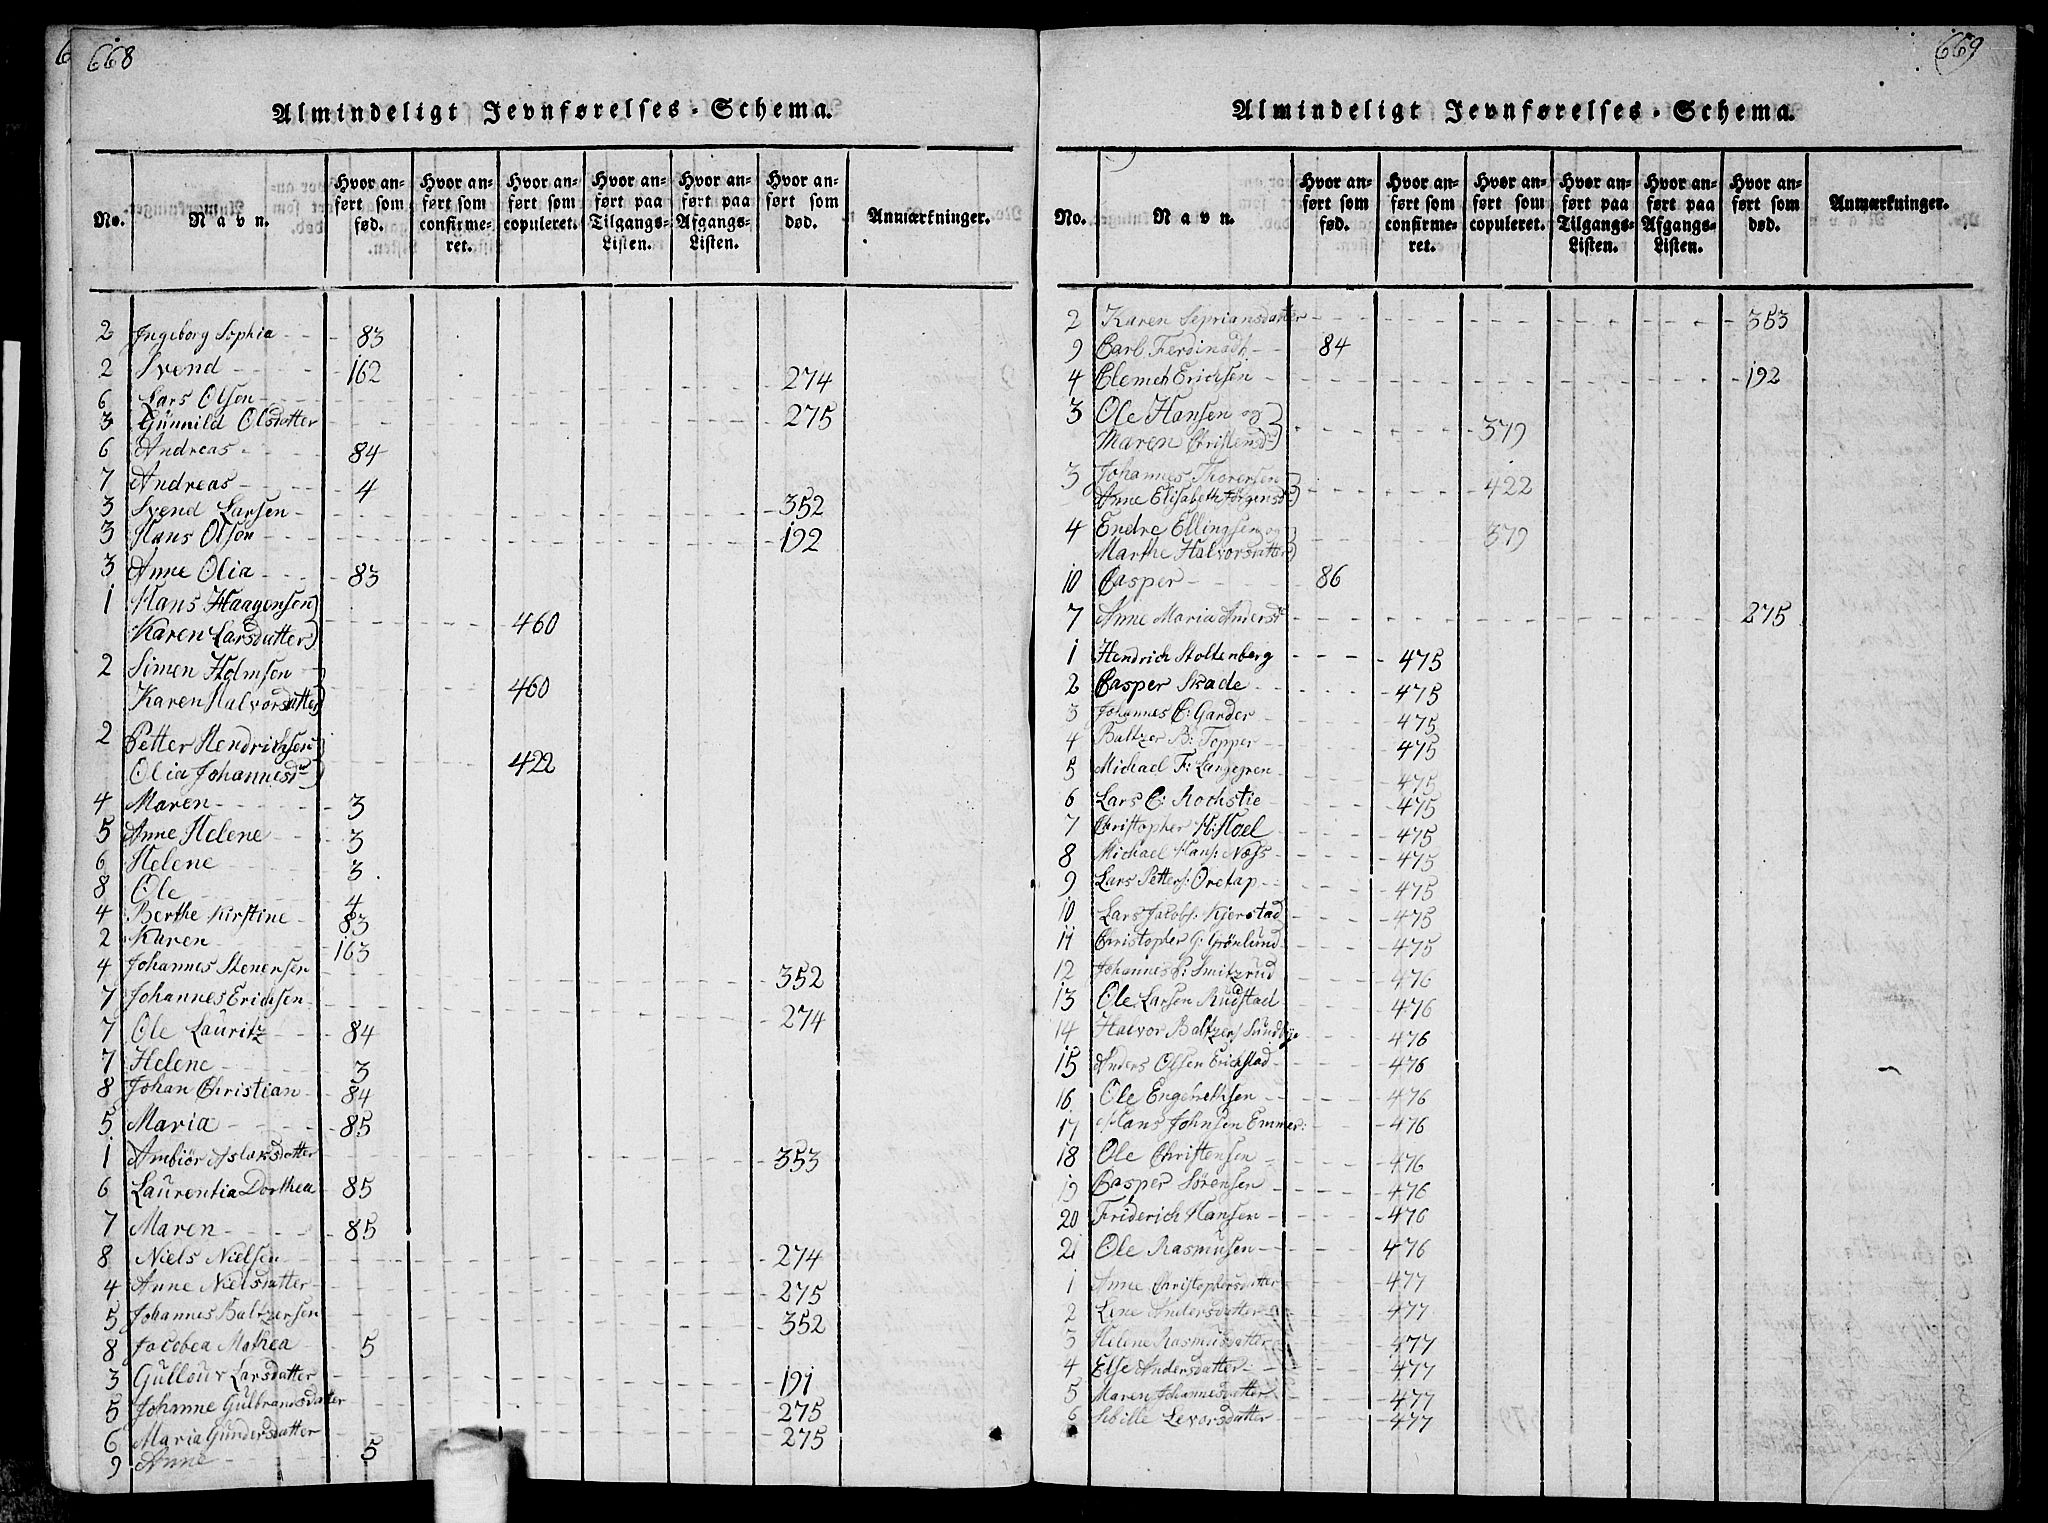 668
Almindeligt Jevnførelses-Schema.
No. Navn. Hvor anført som fød. Hvor anført som confirmeret. Hvor anført som copuleret. Hvor anført paa Tilgangs-Listen. Hvor anført paa Afgangs-Listen. Hvor anført som død. Anmærkninger.
2 Ingeborg Sophia 83
2 Svend 162
6 Lars Olsen 274
3 Gunnild Olsdatter 275
6 Andreas 84
7 Andreas 4
3 Svend Larsen 352
3 Hans Olson 192
3 Anne Olia 83
1 Hans Haagensen
Karen Larsdatter 460
2 Simen Holmsen
Karen Halvorsdatter 460
2 Petter Hendrichsen
Olia Johannesdr 422
4 Maren 3
5 Anne Helene 3
6 Helene 3
8 Ole 4
4 Berthe Kirstine 83
2 Karen 163
4 Johannes Stenersen 352
7 Johannes Erichsen 274
7 Ole Lauritz 84
7 Helene 3
8 Johan Christian 84
5 Maria 85
1 Ambiör Aslaksdatter 353
6 Laurentia Dorthea 85
7 Maren 85
8 Niels Nielsen 274
4 Anne Nielsdatter 275
5 Johannes Baltzersen 352
8 Jacobea Mathea 5
3 Gullour Larsdatter 191
5 Johanne Gulbrandsdatter 275
6 Maria Gundersdatter 275
9 Anne 5
669
Almindeligt Jevnførelses-Schema.
No. Navn. Hvor anført som fød. Hvor anført som confirmeret. Hvor anført som copuleret. Hvor anført paa Tilgangs-Listen. Hvor anført paa Afgangs-Listen. Hvor anført som død. Anmærkninger.
2 Karen Sepriansdatter 353
9 Carl Ferdinadt 84
4 Clemet Erichsen 192
3 Ole Hansen og
Maren Christensdr 379
3 Johannes Thorersen
Anne Elisabeth Jörgensdr 422
4 Endre Ellingsen og
Marthe Halvorsdatter 379
10 Casper 86
7 Anne Maria Andersdr 275
1 Hendrich Stoltenberg 475
2 Casper Skade 475
3 Johannes C: Garder 475
4 Baltzer B: Topper 475
5 Michael F: Langegren 475
6 Lars C: Rochstie 475
7 Christopher H: Hoel 475
8 Michael Hans: Næss 475
9 Lars Petters: Oretap 475
10 Lars Jacobs: Kjerstad 475
11 Christopher G: Grönlund 475
12 Johannes P: Smitzrud 476
13 Ole Larsen Rudstad 476
14 Halvor Baltzers Sundbye 476
15 Anders Olsen Erichstad 476
16 Ole Engebrethsen 476
17 Hans Johnsen Emmer: 476
18 Ole Christensen 476
19 Casper Sörensen 476
20 Friderich Hansen 476
21 Ole Rasmusen 476
1 Anne Christophersdatter 477
2 Lene Andersdatter 477
3 Helene Rasmusdatter 477
4 Else Andersdatter 477
5 Maren Johannesdatter 477
6 Sibille Levorsdatter 477